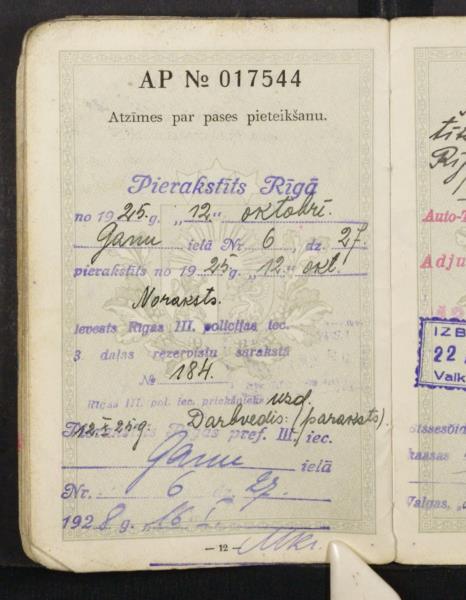 AP № 017544
Atzīmes par pases pieteikšanu.
Pierakstīts Rīgā
no 1925. g. „12" oktobrī.
Ganu ielā Nr. 6, dz. 27.
pierakstīts no 1925g. „12" okt.
Noraksts.
Ievests Rīgas III. policijas iec.
3 daļas rezervistu sarakstā
№ 184.
Rīgas III. pol. iec. priekšnieks uzd.
12. X 25. g. Darbvedis: (paraksts).
Rīgas pref. III. iec.
Ganu ielā
Nr. 6 dz. 27.
1928 g. „16 I
— 12 —
Auto-T
Adju
IZB
22
Valk
kaasas
Valgas,